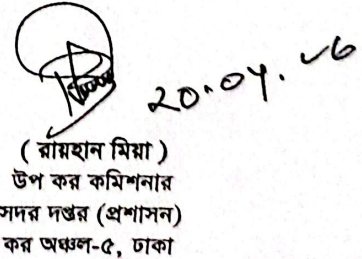 ( রায়হান মিয়া )
উপ কর কমিশনার
সদর দপ্তর (প্রশাসন)
কর অঞ্চল-৫, ঢাকা